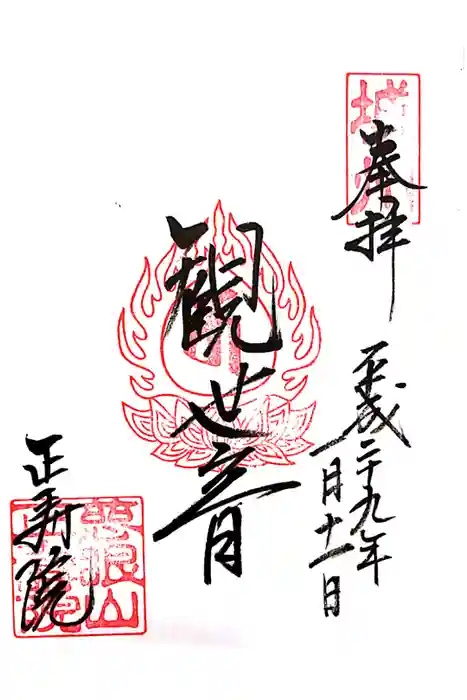 奉拝
平成二十九年
一月十一日
観世音
正寿院